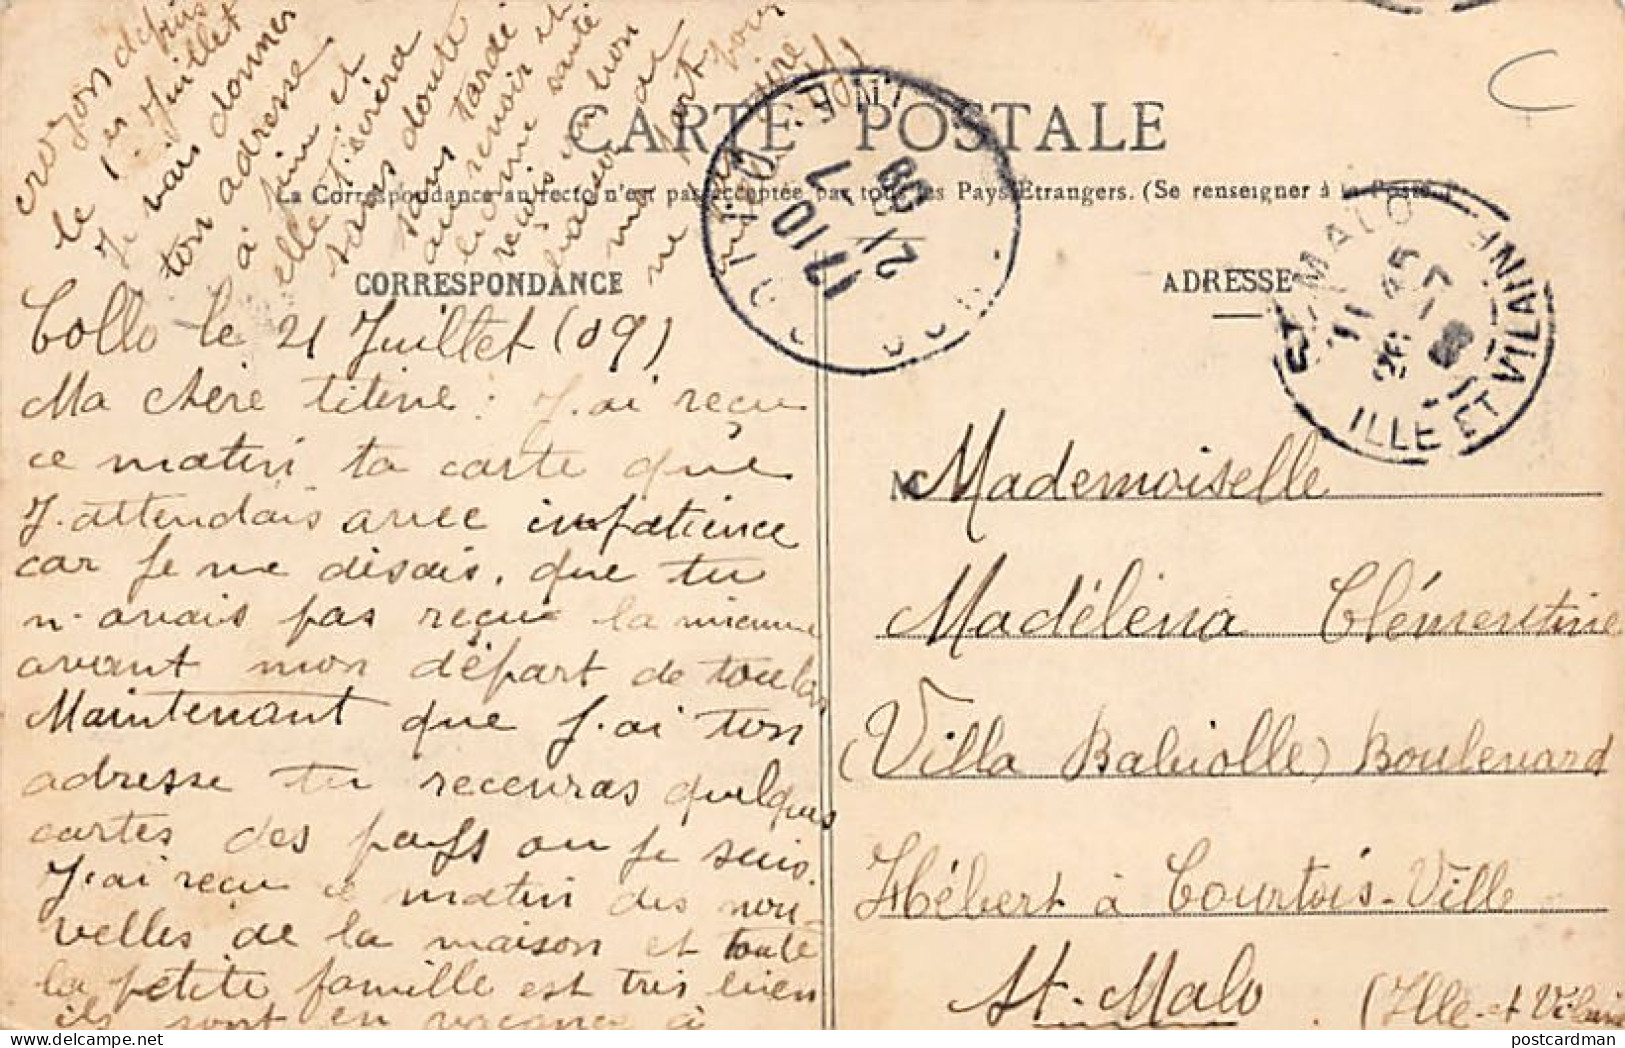 CARTE POSTALE
La Correspondance au recto n'est pas acceptée par tous les Pays Etrangers. (Se renseigner à la Poste.)
CORRESPONDANCE
ADRESSE
Collo le 21 Juillet (09)
Ma chère titine : J.ai reçu
ce matin ta carte que
J.attendais avec impatience
car Je me disais. que tu
n.avais pas reçue la mienne
avant mon départ de toulon
Maintenant que J.ai ton
adresse tu recevras quelques
cartes des pays ou Je suis.
J.ai reçu ce matin des nou-
velles de la maison et toute
la petite famille est très bien
ils sont en vacance à
crozon depuis
le 1er Juillet
Je vais donner
ton adresse
à fim et
elle t'écrira
sans doute
sans tarder
au revoir et
bonne santé
reçois un bon
baiser
17 10
21 7
09
ST MALO
11 45
26 -7
ILLE ET VILAINE
M
Mademoiselle
Madéléna Clémentine
(Villa Babiolle) Boulevard
Hébert à Courtois-Ville
St-Malo (Ille-et Vilaine
C
postcardman